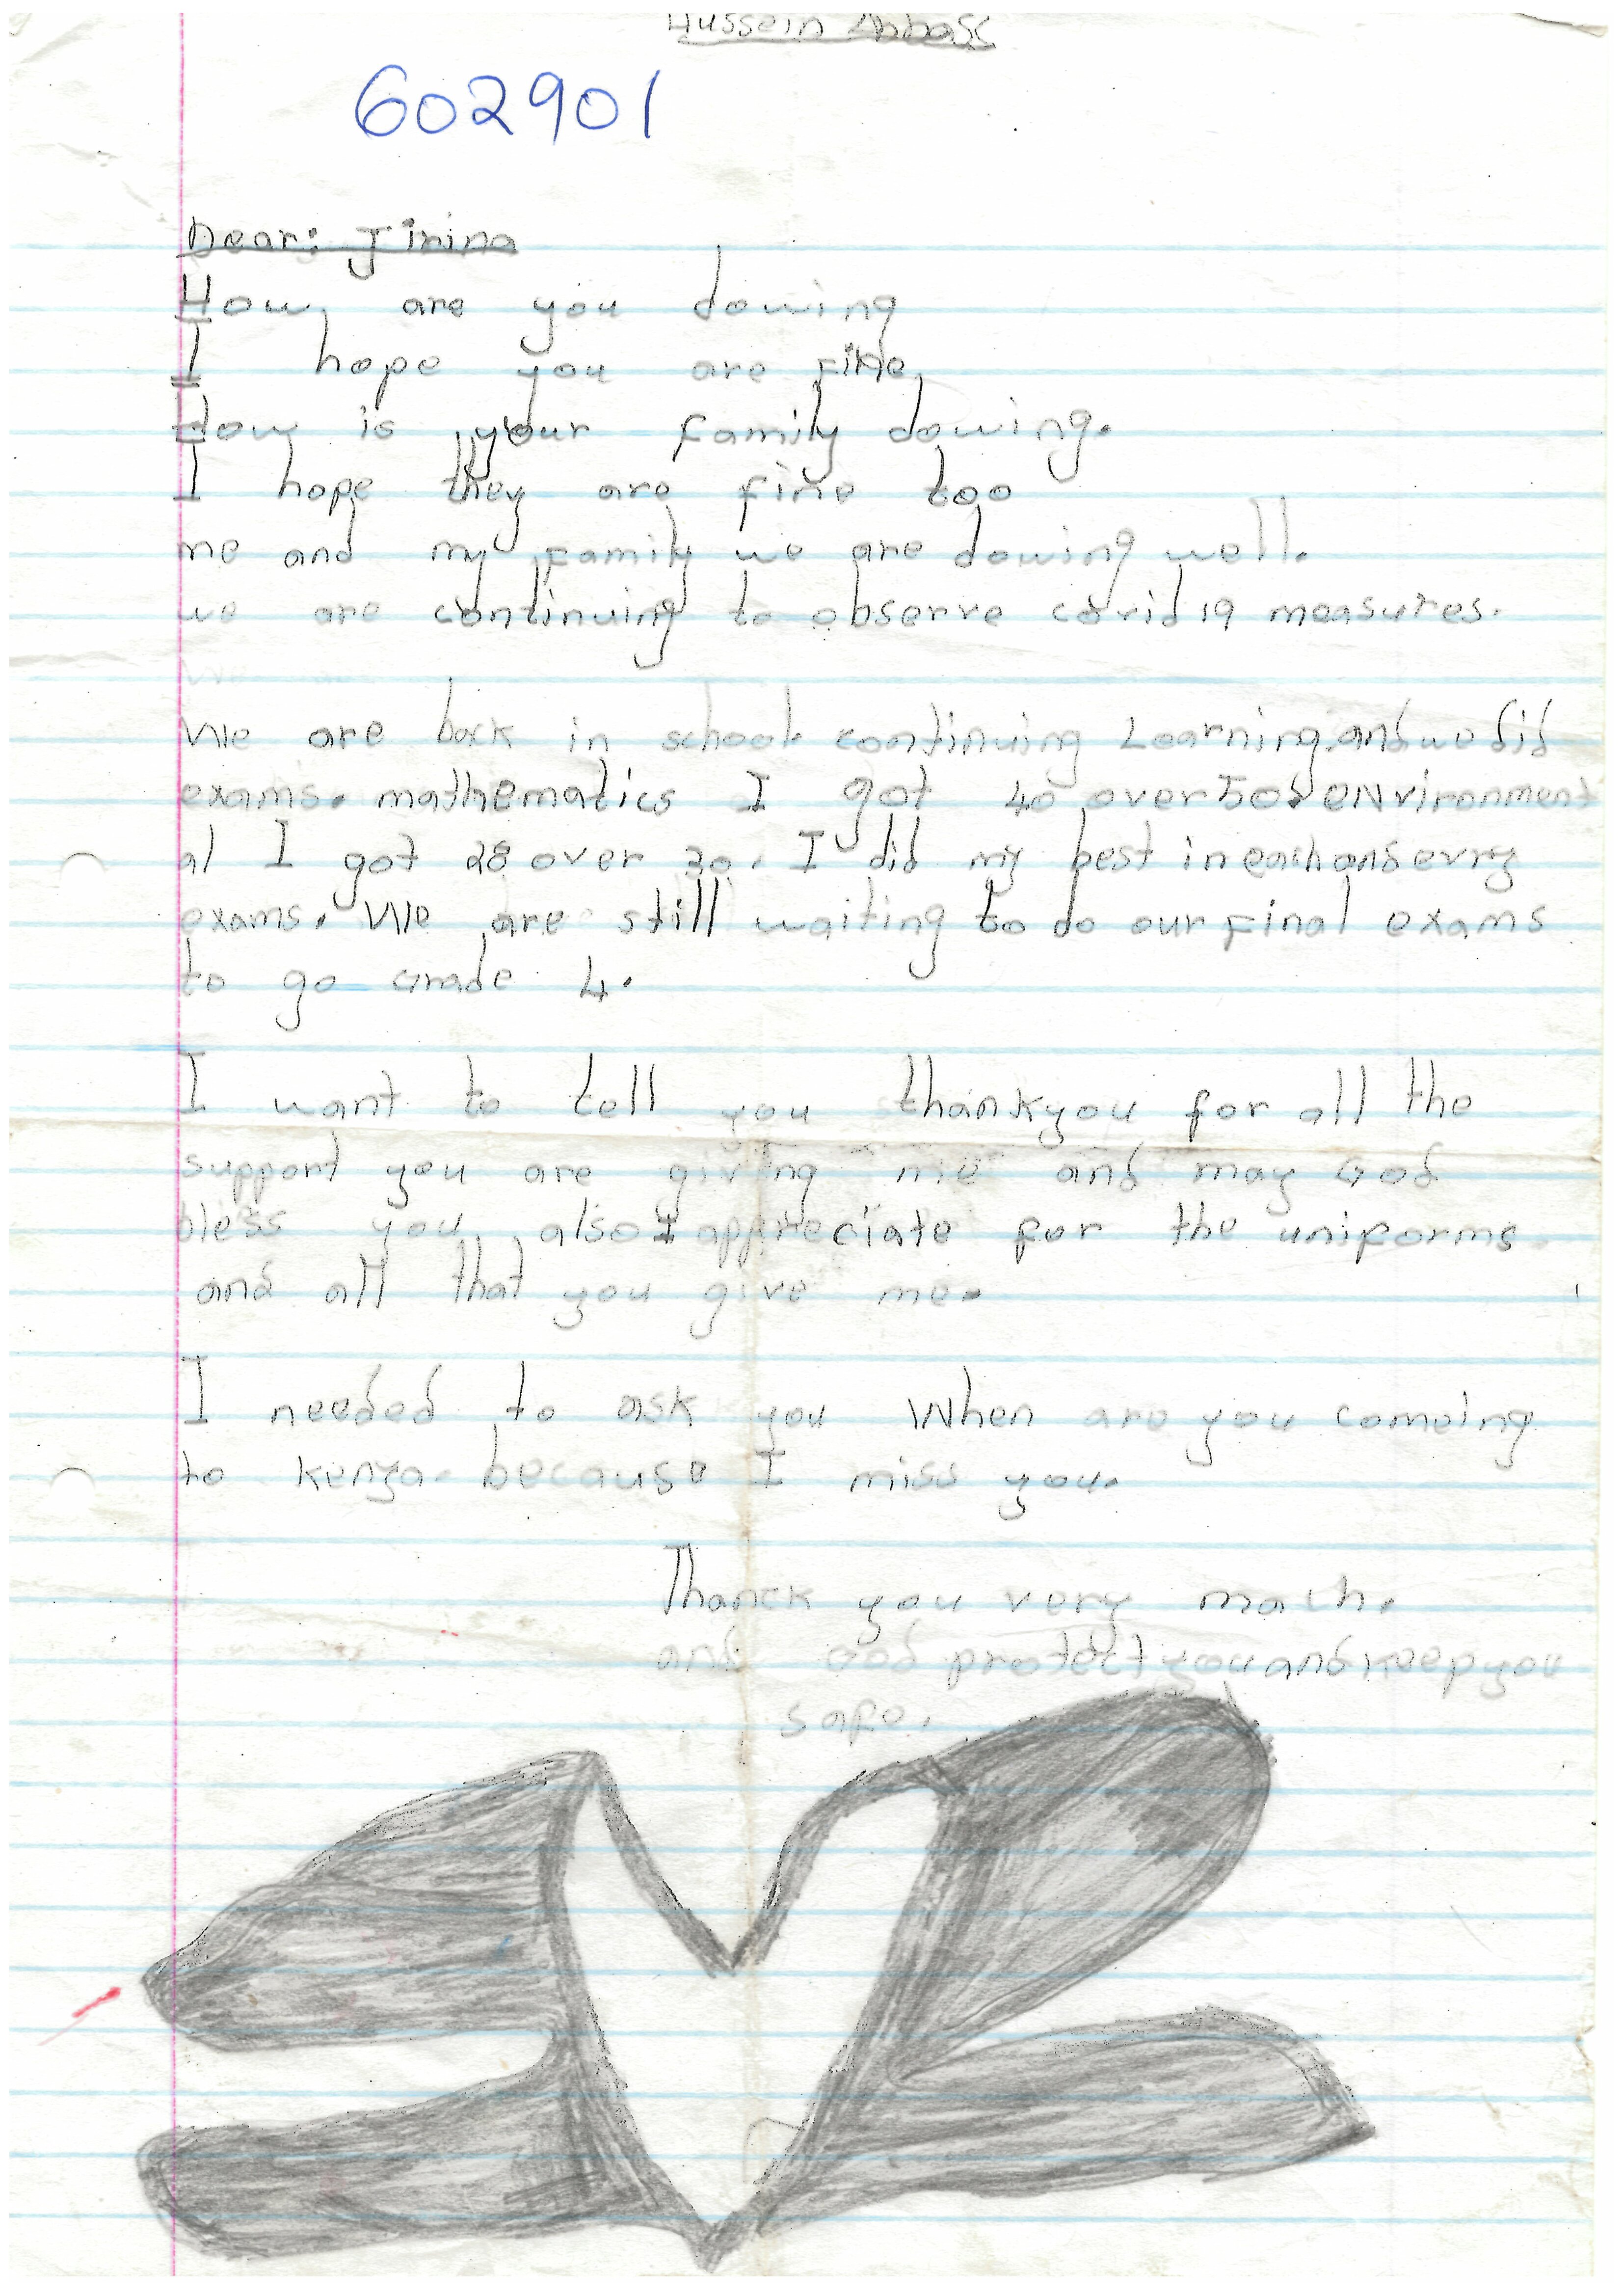 Hussein Abbass
602901
Dear: Jirina
How are you dowing
I hope you are fine
How is your family dowing.
I hope they are fine too
me and my family we are dowing well.
we are continuing to observe covid 19 measures.
We are back in school continuing Learning and we did
exams. mathematics I got 40 over 50. eNvironment
al I got 28 over 30. I did my best in each and evry
exams. We are still waiting to do our final exams
to go Grade 4.
I want to tell you thankyou for all the
support you are giving me and may God
bless you also I appreciate for the uniforms.
and all that you give me.
I needed to ask you When are you comeing
to kenya because I miss you.
Thanck you very mach.
and God protect you and keep you
safe.